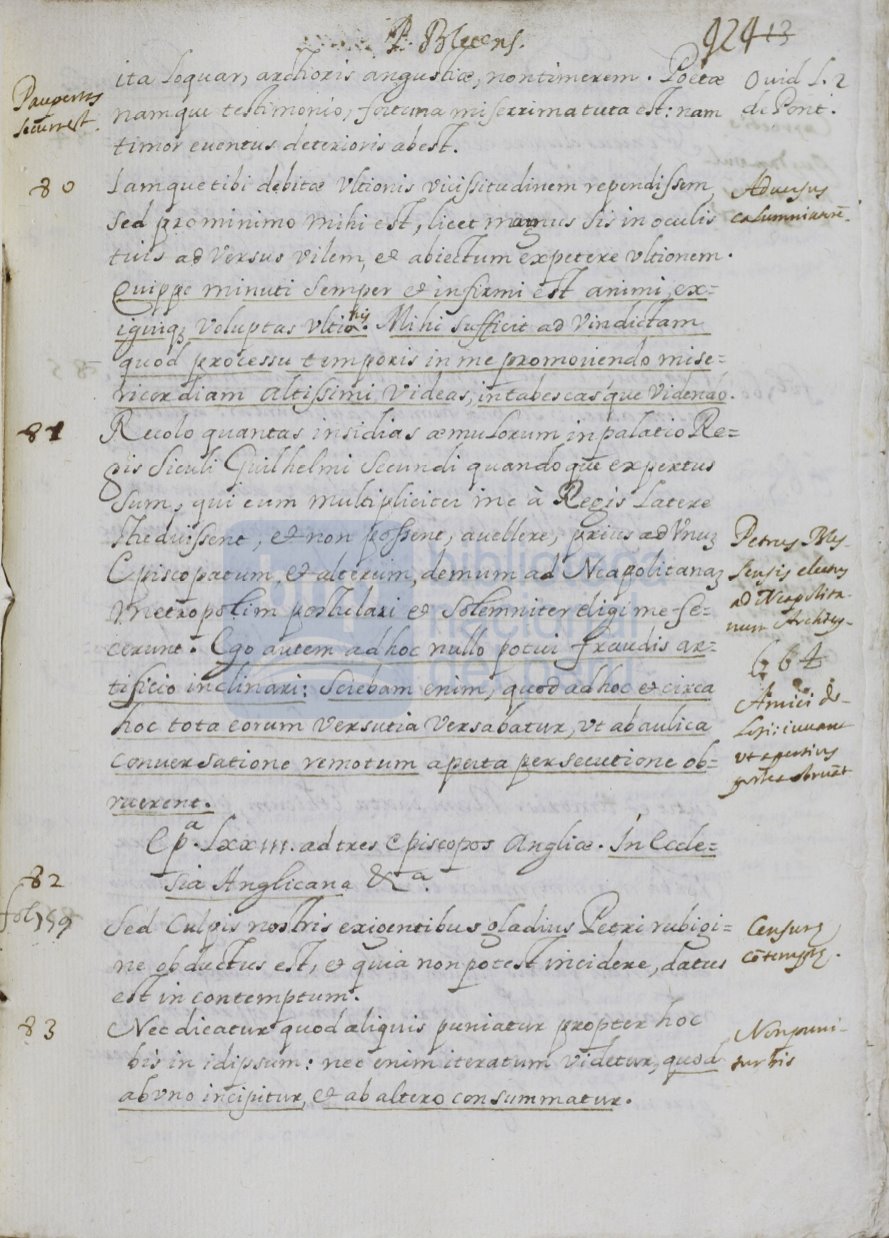 P. Blesens.
424 13
ita loquar, arctioris angustiæ, non timerem. Poetæ
namque testimonio, fortuna miserrima tuta est: nam
timor eventus deterioris abest.
Paupertas
secura est.
Ovid l. 2
de Pont.
80
Iamque tibi debitæ vltionis vicissitudinem rependissem
sed pro minimo mihi est, licet magnus sis in oculis
tuis adversus vilem, et abiectum expetere vltionem.
Quippe minuti semper et infirmi est animi, ex=
iguiq3 voluptas vltionis. Mihi sufficit ad vindictam
quod processu temporis in me promovendo mise=
ricordiam altissimi videas, intabescas que videndo.
Adversus
calumniantē.
81
Recolo quantas insidias æmulorum in palatio Re=
gis Siculi Guilhelmi secundi quandoque expertus
sum, qui cum multipliciter me à Regis latere
studuissent, et non possent, avellere, prius ad vnuȝ
Episcopatum, et alterum, demum ad Neapolitanaȝ
metropolim postulari et solemniter eligi me fe=
cerunt. Ego autem ad hoc nullo potui fraudis ar=
tificio inclinari: sciebam enim, quod ad hoc et circa
hoc tota eorum versutia versabatur, vt ab aulica
conversatione remotum aperta persecutione ob=
ruerent.
Petrus Ble-
sensis electus
ad Neapolita-
num Archiep.
664
Amici do-
losi: iuvant
vt apertius
postea obruāt
Epª. LXXIII. ad tres Episcopos Angliæ. In Eccle=
sia Anglicana &ª.
82
fol 159
Sed culpis nostris exigentibus gladius Petri rubigi=
ne obductus est, et quia non potest incidere, datus
est in contemptum.
Censura
cōtempta.
83
Nec dicatur quod aliquis puniatur propter hoc
bis in idipsum: nec enim iteratum videtur, quod
ab vno incipitur, et ab altero consummatur.
Non puni-
tur bis
biblioteca
nacional
del perú